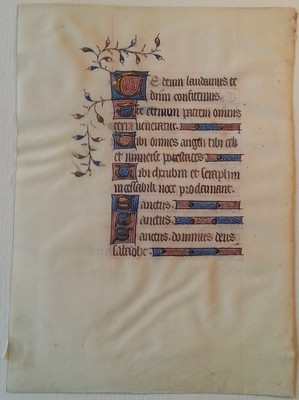 Te deum laudamus te
dnm confitemur.
Te eternum patrem omnis
terra veneratur.
Tibi omnes angeli tibi celi
et universe potestates
Tibi cherubin et seraphin
incessabili voce proclamant.
Sanctus.
Sanctus.
Sanctus. dominus deus
sabaoth.